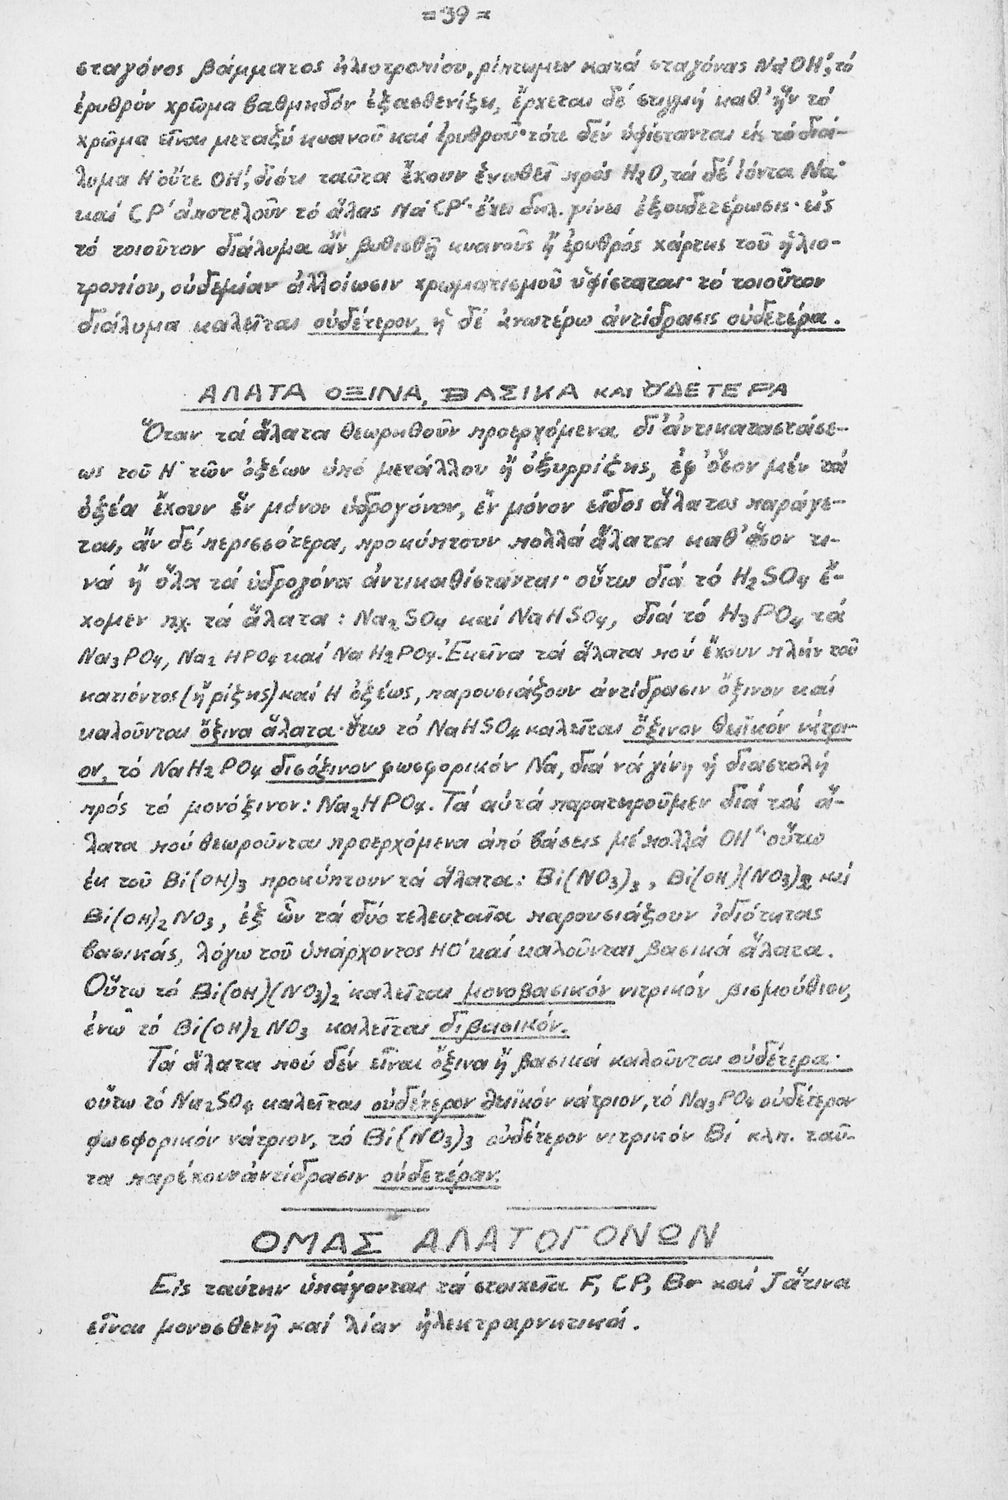 = 39 =
σταγόνος βάμματος ἡλιοτροπίου, ρίπτωμεν κατά σταγόνας NaOH, τό
ἐρυθρόν χρῶμα βαθμηδόν ἐξασθενίζει, ἔρχεται δέ στιγμή καθ' ἥν τό
χρῶμα εἶναι μεταξύ κυανοῦ καί ἐρυθροῦ· τότε δέν ὑφίστανται εἰς τό διά-
λυμα H˙ οὔτε OH', διότι ταῦτα ἔχουν ἑνωθεῖ πρός H2O, τά δέ ἰόντα Na˙
καί Cl' ἀποτελοῦν τό ἅλας Na˙Cl'· ἔχει δηλ. γίνει ἐξουδετέρωσις· εἰς
τό τοιοῦτον διάλυμα ἄν βυθισθῇ κυανοῦς ἤ ἐρυθρός χάρτης τοῦ ἡλιο-
τροπίου, οὐδεμίαν ἀλλοίωσιν χρωματισμοῦ ὑφίσταται· τό τοιοῦτον
διάλυμα καλεῖται οὐδέτερον, ἡ δέ ἀνωτέρω ἀντίδρασις οὐδετέρα.
ΑΛΑΤΑ ΟΞΙΝΑ, ΒΑΣΙΚΑ ΚΑΙ ΟΥΔΕΤΕΡΑ
Ὅταν τά ἅλατα θεωρηθοῦν προερχόμενα δι' ἀντικαταστάσε-
ως τοῦ H˙ τῶν ὀξέων ὑπό μετάλλου ἤ ὀξυρρίζης, ἐφ' ὅσον μέν τά
ὀξέα ἔχουν ἕν μόνον ὑδρογόνον, ἕν μόνον εἶδος ἅλατος παράγε-
ται, ἄν δέ περισσότερα, προκύπτουν πολλά ἅλατα καθ' ὅσον τι-
νά ἤ ὅλα τά ὑδρογόνα ἀντικαθίστανται· οὕτω διά τό H2SO4 ἔ-
χομεν πχ. τά ἅλατα : Na2SO4 καί NaHSO4, διά τό H3PO4 τά
Na3PO4, Na2HPO4 καί NaH2PO4. Ἐκεῖνα τά ἅλατα πού ἔχουν πλήν τοῦ
κατιόντος (ἤ ρίζης) καί H ὀξέως, παρουσιάζουν ἀντίδρασιν ὄξινον καί
καλοῦνται ὄξινα ἅλατα· οὕτω τό NaHSO4 καλεῖται ὄξινον θειϊκόν νάτρι-
ον, τό NaH2PO4 δισόξινον φωσφορικόν Na, διά νά γίνῃ ἡ διαστολή
πρός τό μονόξινον: Na2HPO4. Τά αὐτά παρατηροῦμεν διά τά ἅ-
λατα πού θεωροῦνται προερχόμενα ἀπό βάσεις μέ πολλά OH'· οὕτω
ἐκ τοῦ Bi(OH)3 προκύπτουν τά ἅλατα: Bi(NO3)3, Bi(OH)(NO3)2 καί
Bi(OH)2NO3, ἐξ ὧν τά δύο τελευταῖα παρουσιάζουν ἰδιότητας
βασικάς, λόγω τοῦ ὑπάρχοντος HO' καί καλοῦνται βασικά ἅλατα.
Οὕτω τό Bi(OH)(NO3)2 καλεῖται μονοβασικόν νιτρικόν βισμούθιον,
ἐνῶ τό Bi(OH)2NO3 καλεῖται διβασικόν.
Τά ἅλατα πού δέν εἶναι ὄξινα ἤ βασικά καλοῦνται οὐδέτερα·
οὕτω τό Na2SO4 καλεῖται οὐδέτερον θειϊκόν νάτριον, τό Na3PO4 οὐδέτερον
φωσφορικόν νάτριον, τό Bi(NO3)3 οὐδέτερον νιτρικόν Bi κλπ. ταῦ-
τα παρέχουν ἀντίδρασιν οὐδετέραν.
ΟΜΑΣ ΑΛΑΤΟΓΟΝΩΝ
Εἰς ταύτην ὑπάγονται τά στοιχεῖα F, Cl, Br καί J ἅτινα
εἶναι μονοσθενῆ καί λίαν ἠλεκτραρνητικά.